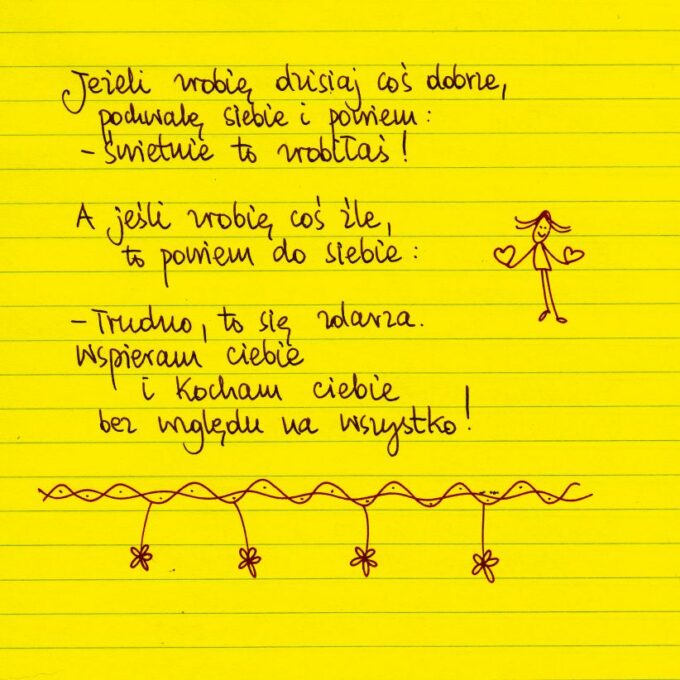 Jeżeli zrobię dzisiaj coś dobrze,
pochwalę siebie i powiem:
- Świetnie to zrobiłaś!
A jeśli zrobię coś źle,
to powiem do siebie:
- Trudno, to się zdarza.
Wspieram ciebie
i kocham ciebie
bez względu na wszystko!